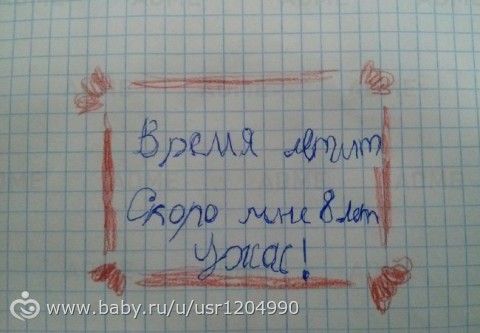 Время летит
Скоро мне 8 лет
Ужас!
www.baby.ru/u/usr1204990